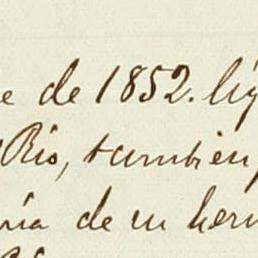 e de 1852. hij
Rio, tambien
ria de un herm